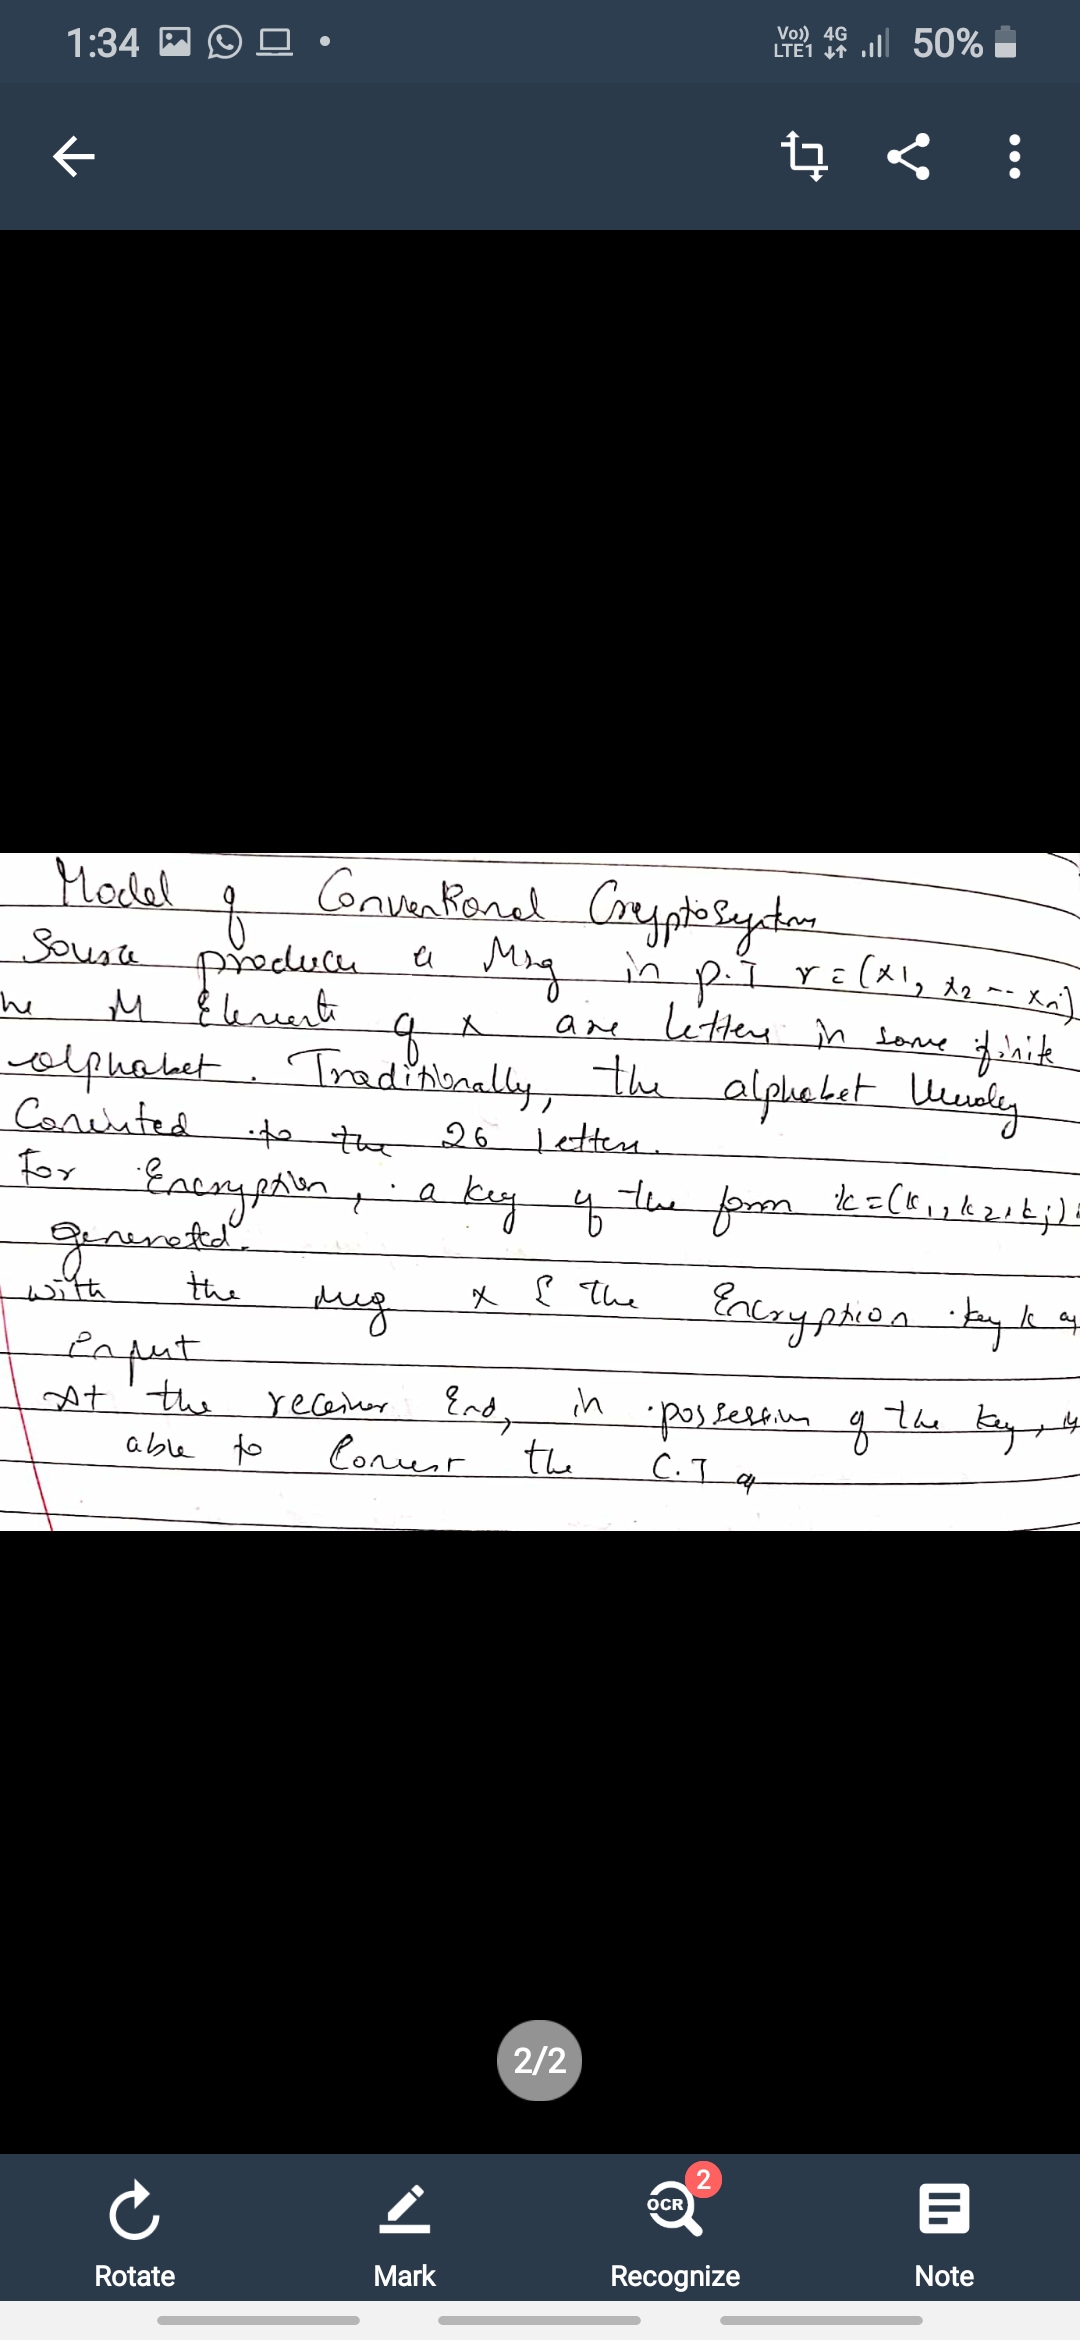 1:34
Vo)) 4G
LTE1 50%
Model of Conventional Cryptosystem
Source produces a Msg in p.T = (x1, x2 -- xn)
he M Element of x are letters in some finite
alphabet. Traditionally, the alphabet Usually
to the 26 letters.
For Encryption, a key of the form k=(k1, k2, kj)
generated.
with the msg x & the Encryption key k as
input
At the receiver End, in possession of the key,
able to Convert the C.T
2/2
OCR 2
Rotate Mark Recognize Note